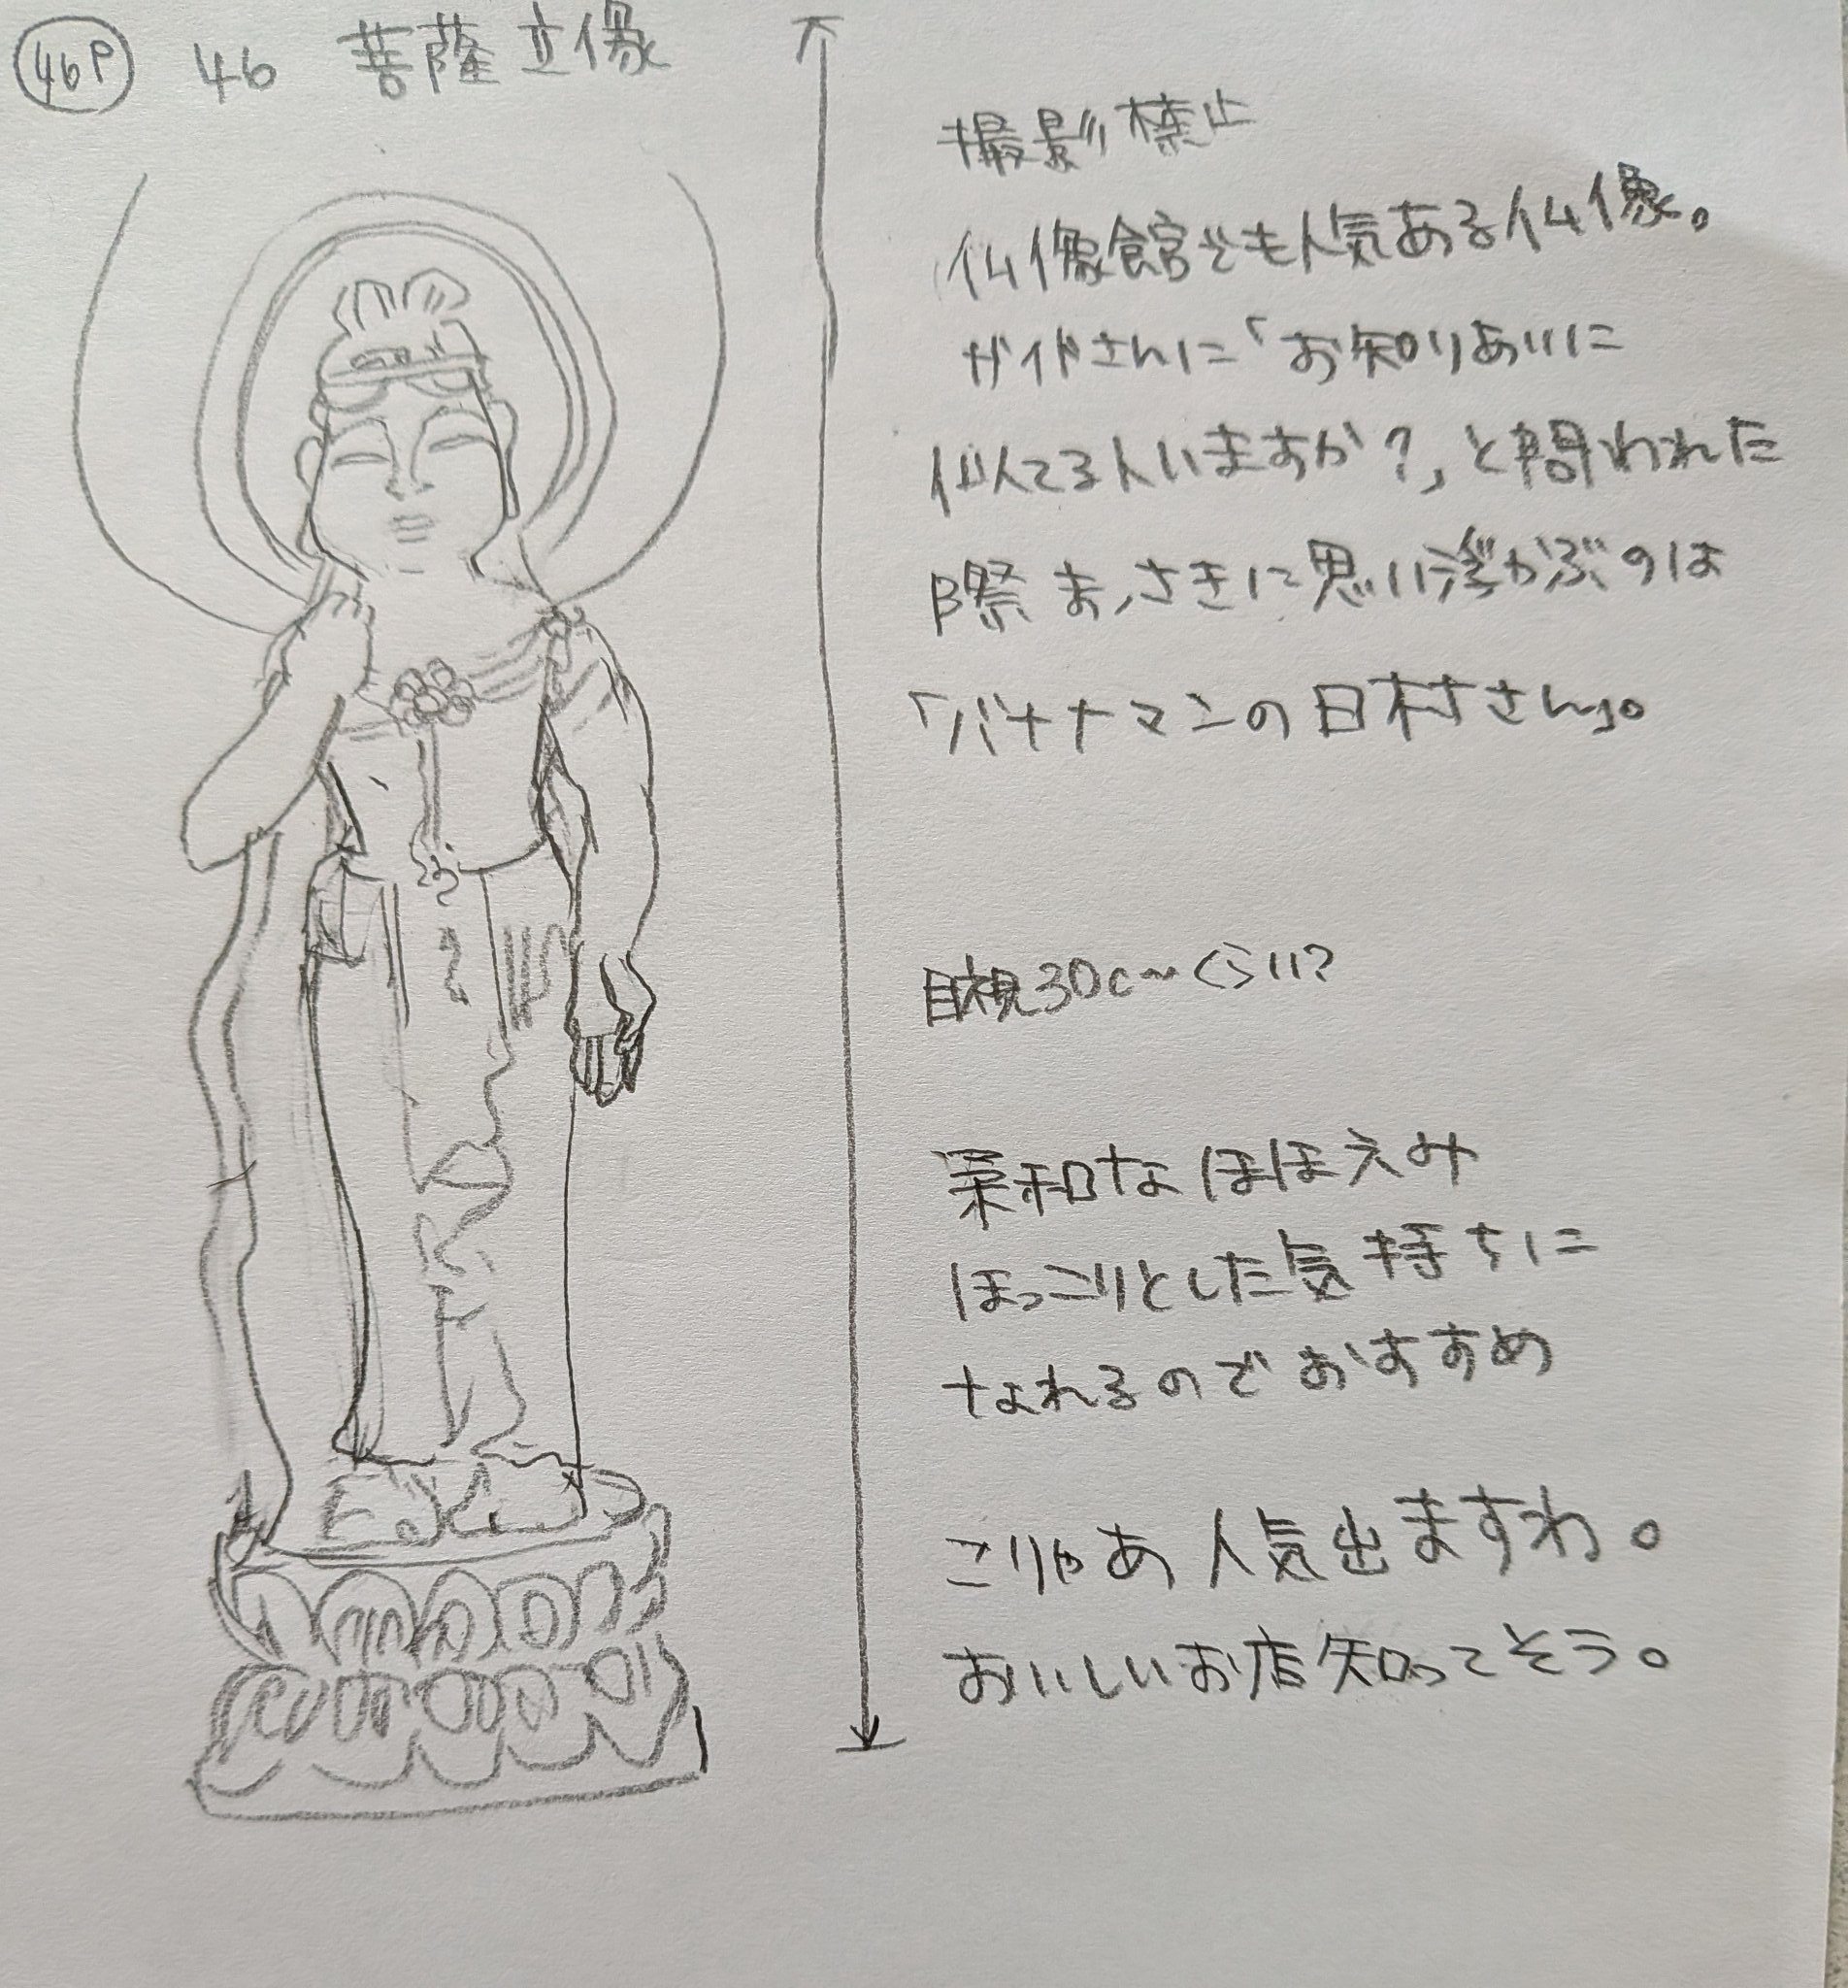 46P 46 菩薩立像
撮影禁止
仏像館でも人気ある仏像。
ガイドさんに「お知りあいに
似てる人いますか？」と問われた
際まっさきに思い浮かぶのは
「バナナマンの日村さん」。
目視30cmくらい？
柔和なほほえみ
ほっこりとした気持ちに
なれるのでおすすめ
こりゃあ人気出ますわ。
おいしいお店知ってそう。